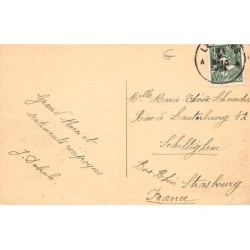 Grand Merci et
sentiments réciproques
Mlle Marie-Thérèse Schneider
Rue de Lauterbourg
Schiltigheim
Bas Rhin Strasbourg
France